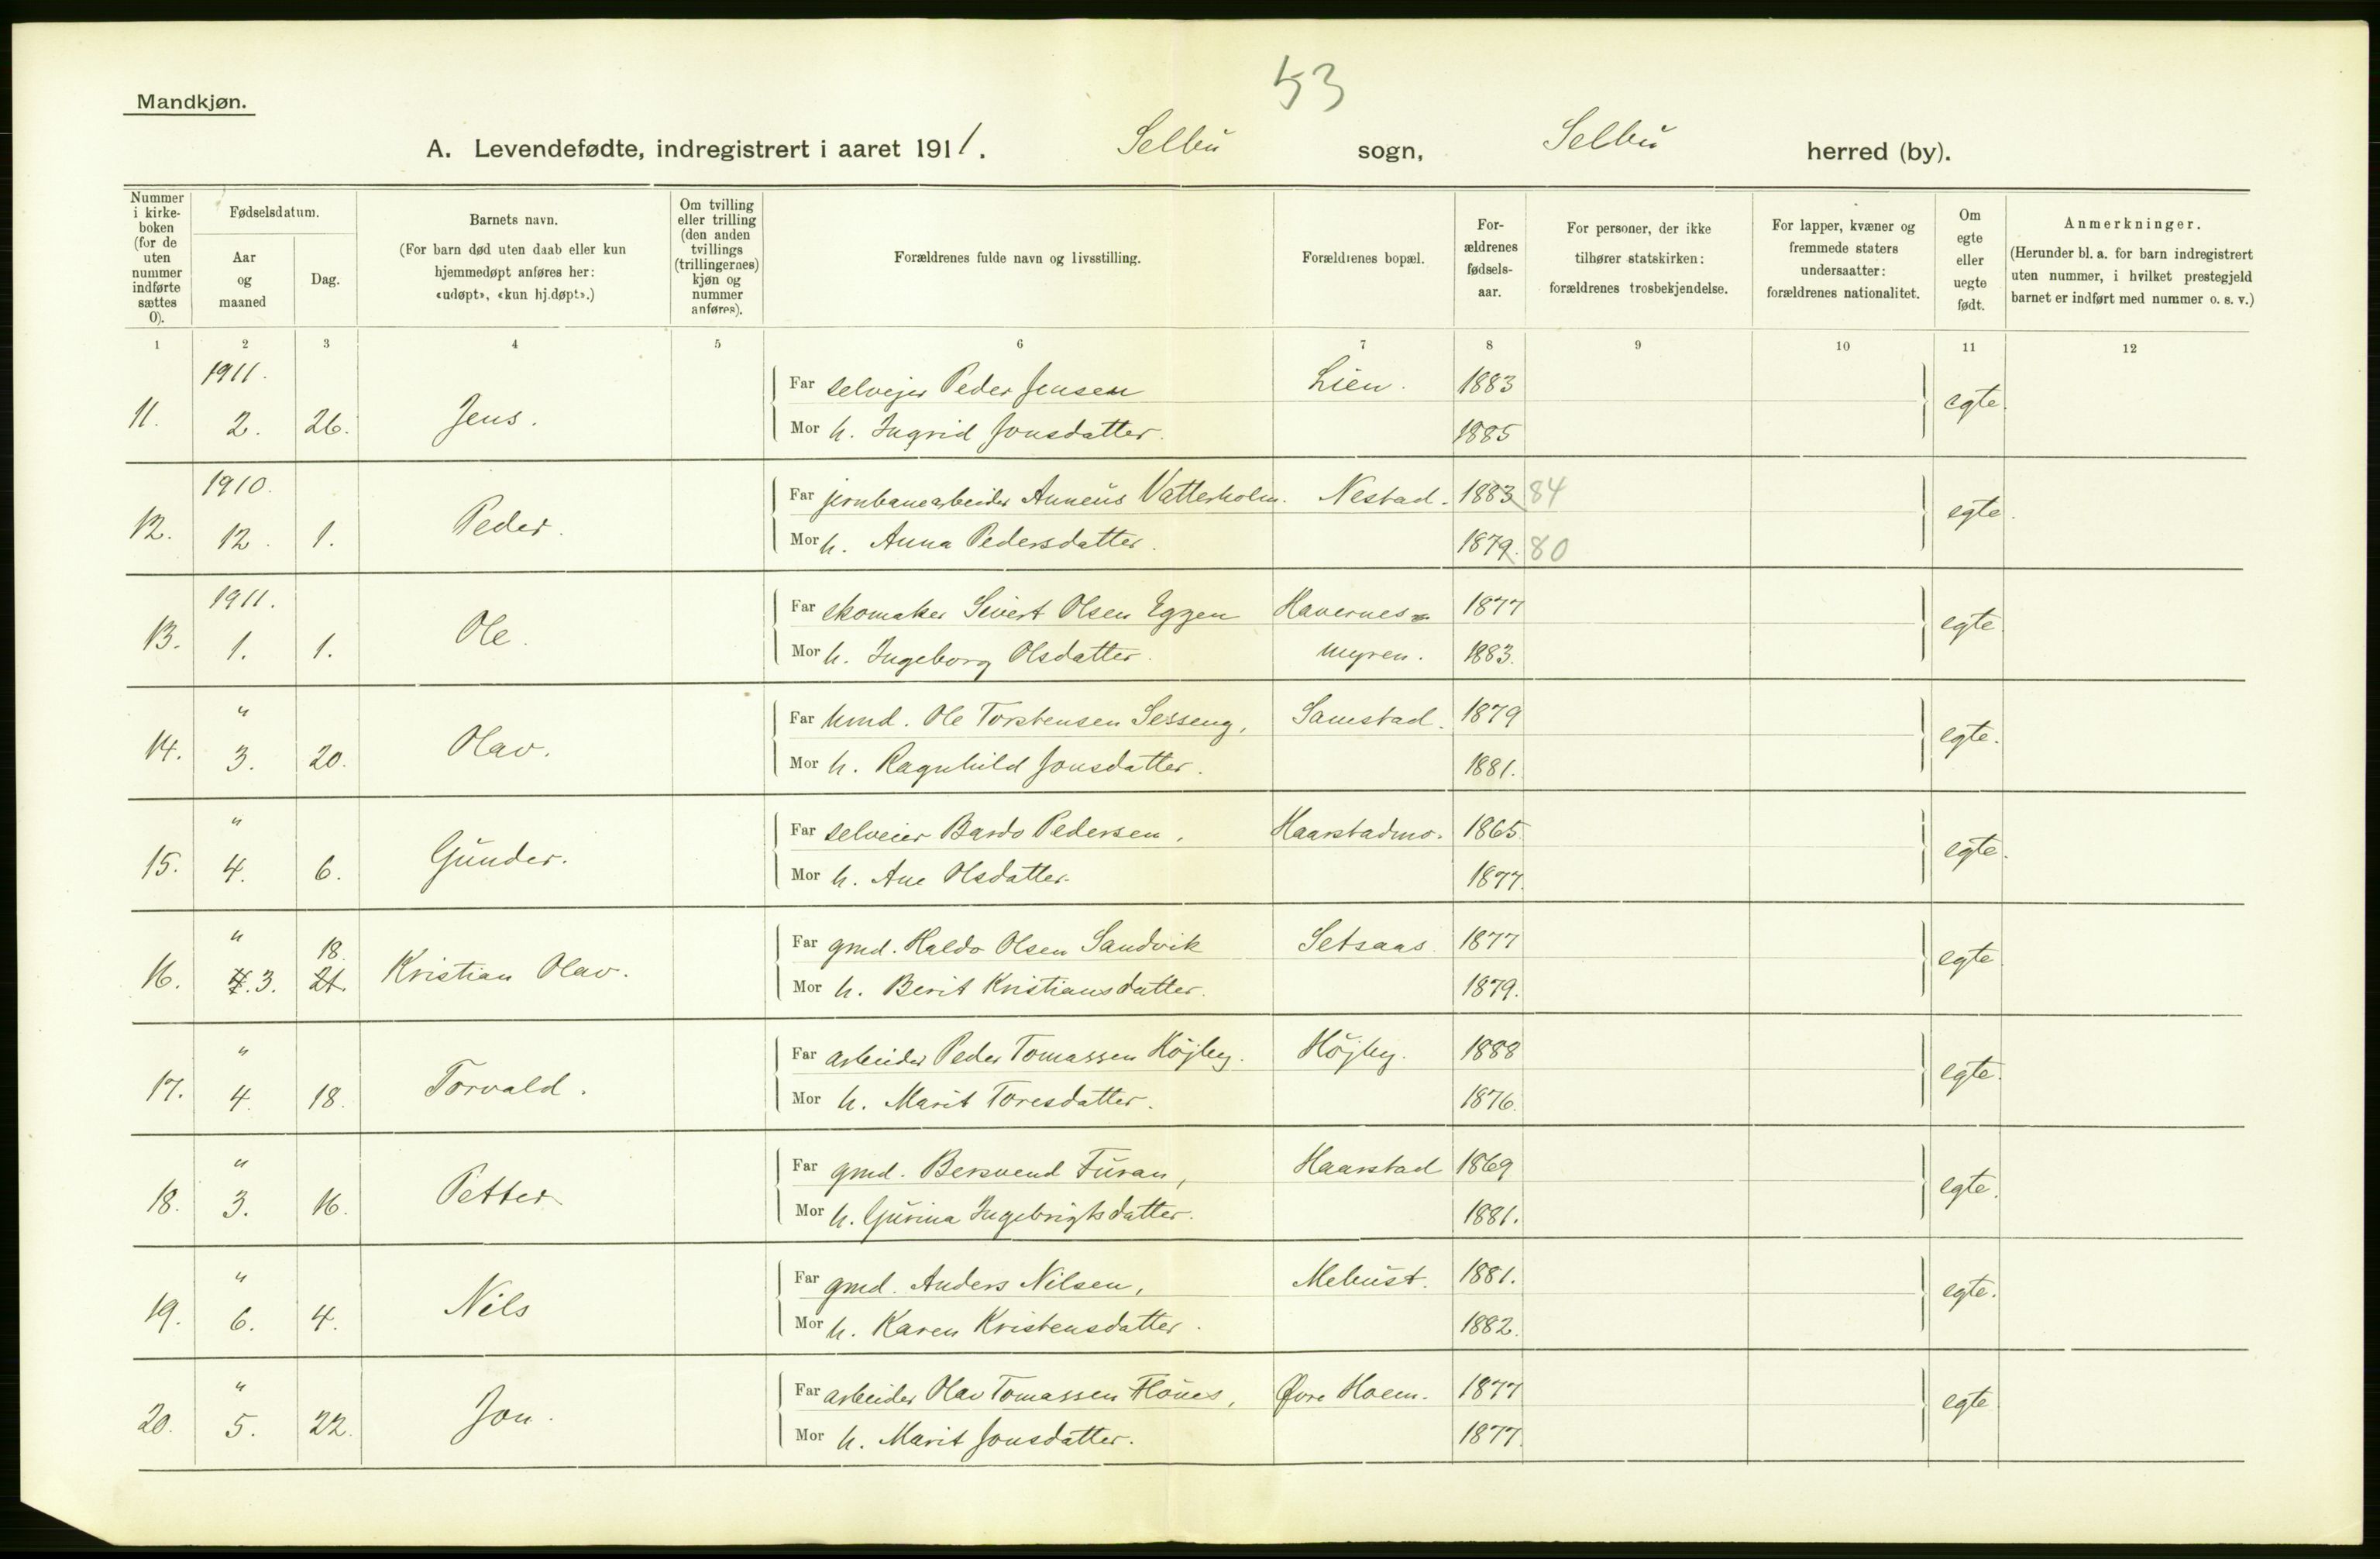 53
Mandkjøn.
A. Levendefødte, indregistrert i aaret 1911. Selbu sogn, Selbu herred (by).
Nummer i kirke-boken (for de uten nummer indførte sættes 0).
Fødselsdatum.
Aar og maaned
Dag.
Barnets navn.
(For barn død uten daab eller kun hjemmedøpt anføres her: «udøpt», «kun hj.døpt».)
Om tvilling eller trilling (den anden tvillings (trillingernes) kjøn og nummer anføres).
Forældrenes fulde navn og livsstilling.
Forældrenes bopæl.
For-ældrenes fødsels-aar.
For personer, der ikke tilhører statskirken: forældrenes trosbekjendelse.
For lapper, kvæner og fremmede staters undersaatter: forældrenes nationalitet.
Om egte eller uegte født.
Anmerkninger.
(Herunder bl. a. for barn indregistrert uten nummer, i hvilket prestegjeld barnet er indført med nummer o. s. v.)
1 2 3 4 5 6 7 8 9 10 11 12
1911.
11. 2. 26. Jens. Far selvejer Peder Jensen Lien. 1883 egte.
Mor h. Ingrid Jonsdatter. 1885
1910.
12. 12. 1. Peder. Far jernbanearbeider Anneus Vatterholm. Nestad. 1883 84 egte.
Mor h. Anna Pedersdatter. 1879. 80
1911.
13. 1. 1. Ole. Far skomaker Sivert Olsen Eggen Havernes- 1877 egte.
Mor h. Ingeborg Olsdatter. myren. 1883.
"
14. 3. 20. Olav. Far hmd. Ole Torstensen Sesseng, Samstad. 1879 egte.
Mor h. Ragnhild Jonsdatter. 1881.
"
15. 4. 6. Gunder. Far selveier Bardo Pedersen, Haarstadmo. 1865 egte.
Mor h. Ane Olsdatter. 1877.
"
18.
16. 4. 3. 21. Kristian Olav. Far gmd. Haldo Olsen Sandvik Setsaas 1877 egte.
Mor h. Berit Kristiansdatter. 1879.
"
17. 4. 18. Torvald. Far arbeider Peder Tomassen Höjby. Höjby. 1888 egte.
Mor h. Marit Toresdatter. 1876.
"
18. 3. 16. Petter Far gmd. Bersvend Furan, Haarstad 1869 egte.
Mor h. Gurina Ingebrigtsdatter. 1881.
"
19. 6. 4. Nils Far gmd. Anders Nilsen, Mebust. 1881. egte.
Mor h. Karen Kristensdatter. 1882.
"
20. 5. 22. Jon. Far arbeider Olav Tomassen Flönes, Øvre Hoem. 1877 egte
Mor h. Marit Jonsdatter. 1877.